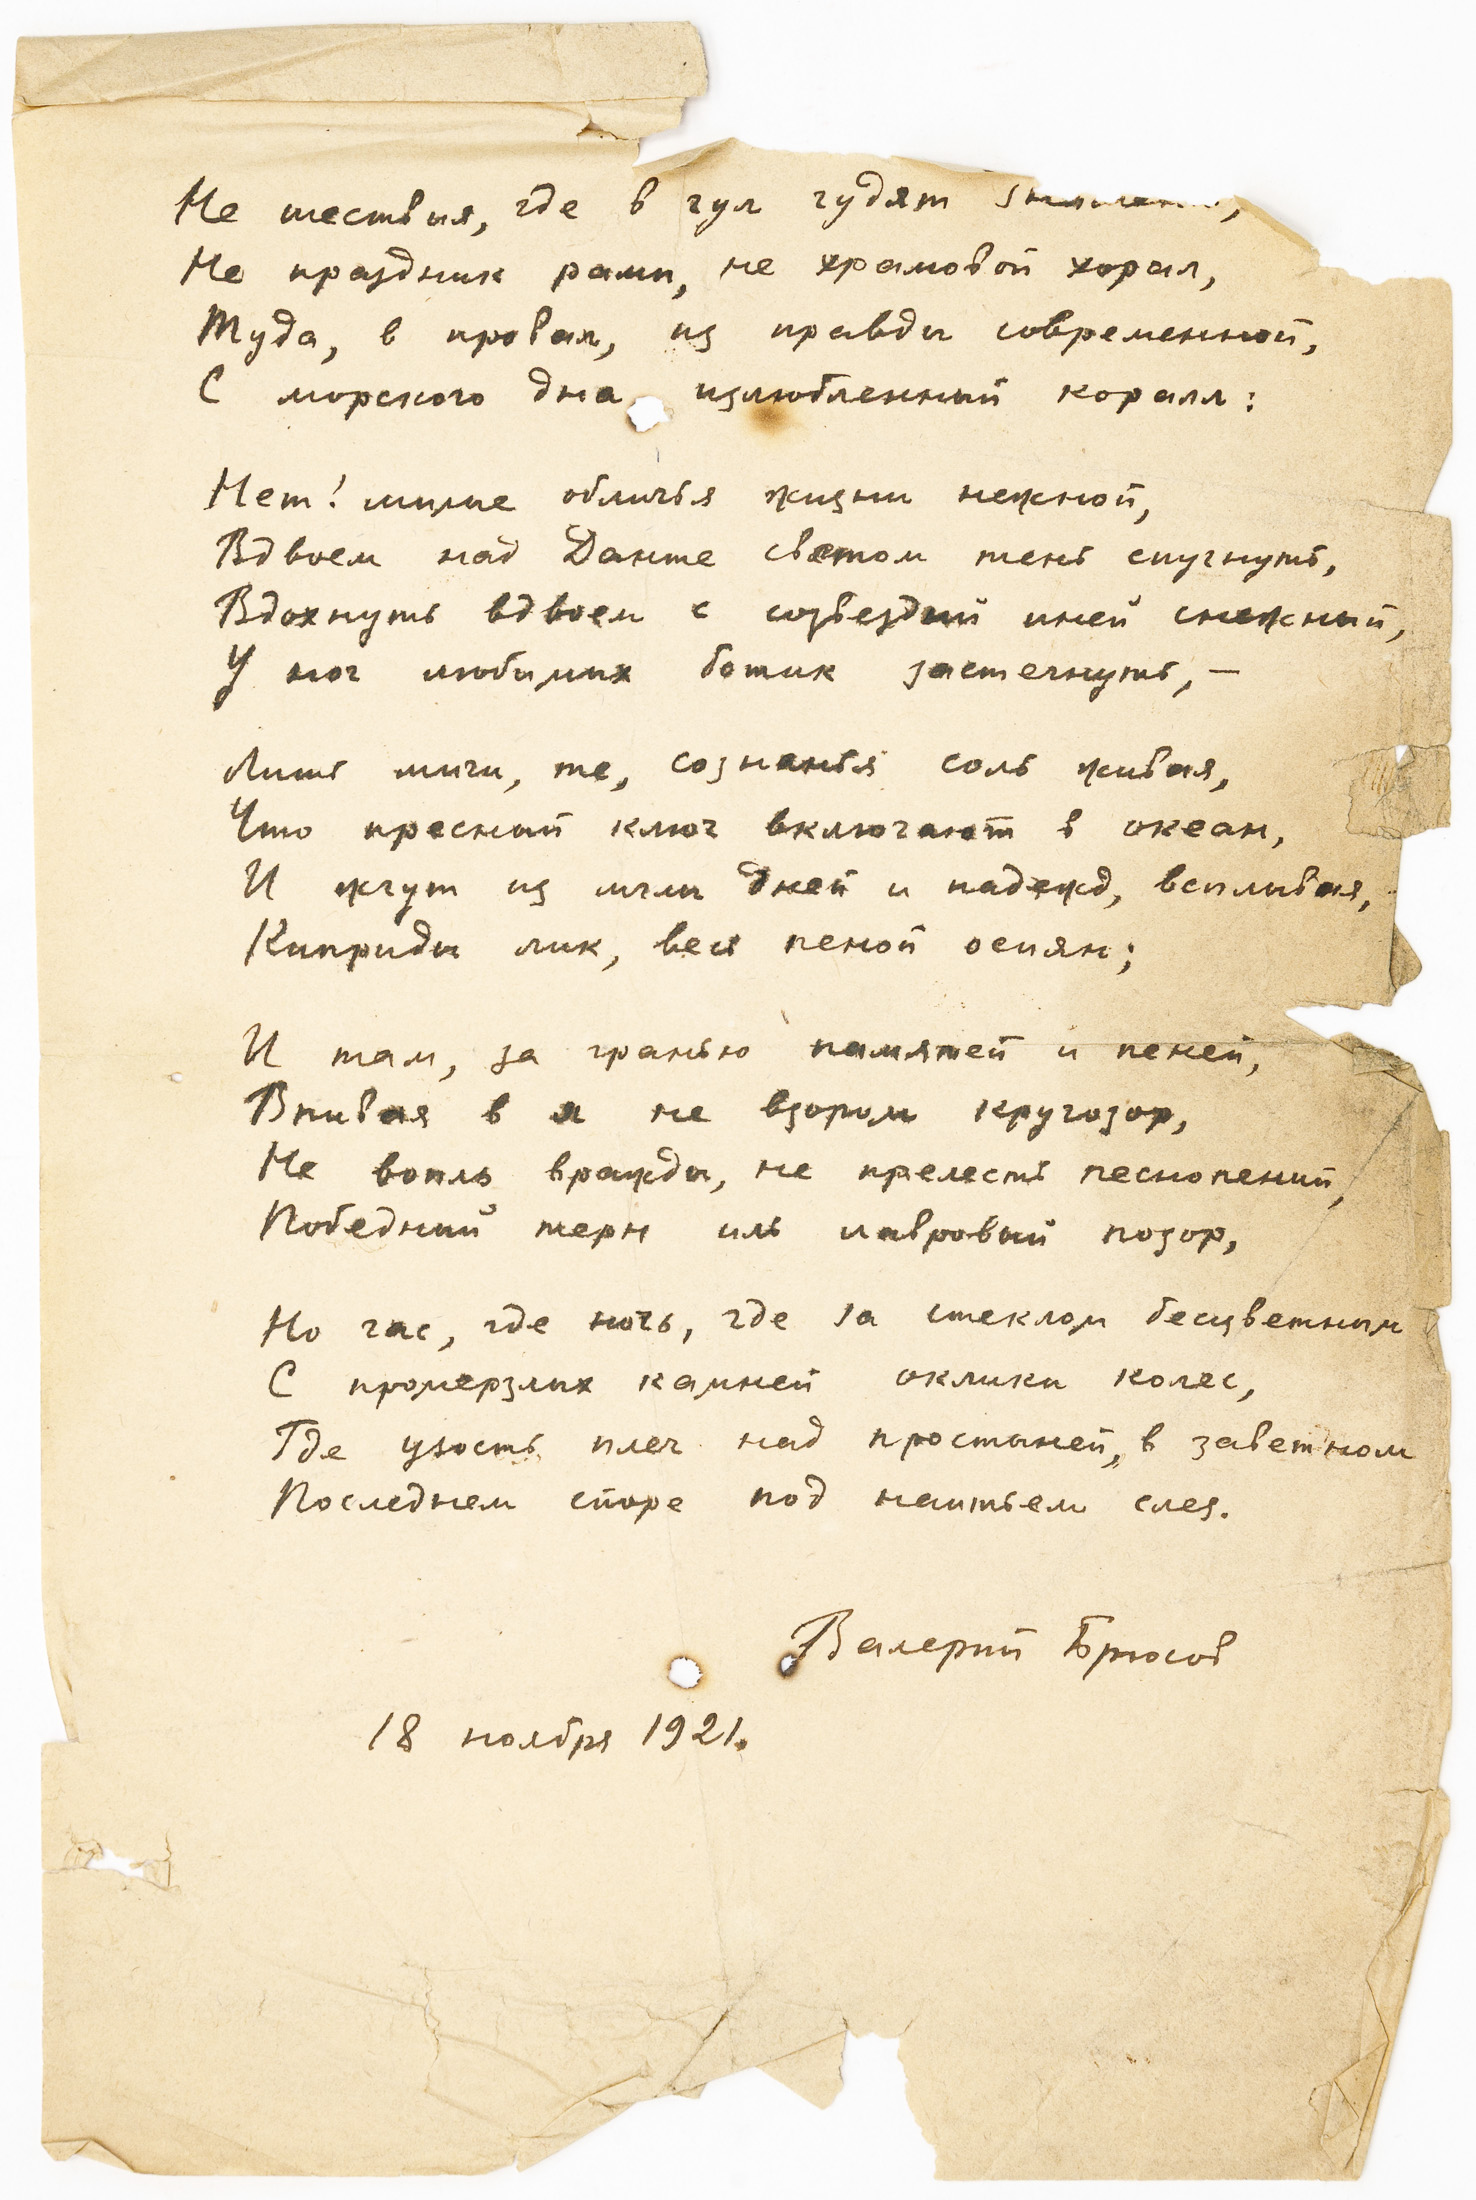 Не шествия, где в гул гудят знамена,
Не праздник рамп, не храмовой хорал,
Туда, в провал, из правды современной,
С морского дна излюбленный коралл:
Нет! милые обличья жизни нежной,
Вдвоем над Данте светом тень спугнуть,
Вдохнуть вдвоем с созвездий иней снежный,
У ног любимых ботик застегнуть, —
Лишь миги, те, сознанья соль живая,
Что пресный ключ включают в океан,
И жгут из мглы дней и надежд, всплывая,
Киприды лик, весь пеной осиян;
И там, за гранью памятей и пеней,
Впивая в я не взором кругозор,
Не вопль вражды, не прелесть песнопений,
Победный терн иль лавровый позор,
Но час, где ночь, где за стеклом бесцветным
С промерзлых камней оклики колес,
Где узость плеч над простыней, в заветном
Последнем споре под наитьем слез.
Валерий Брюсов
18 ноября 1921.